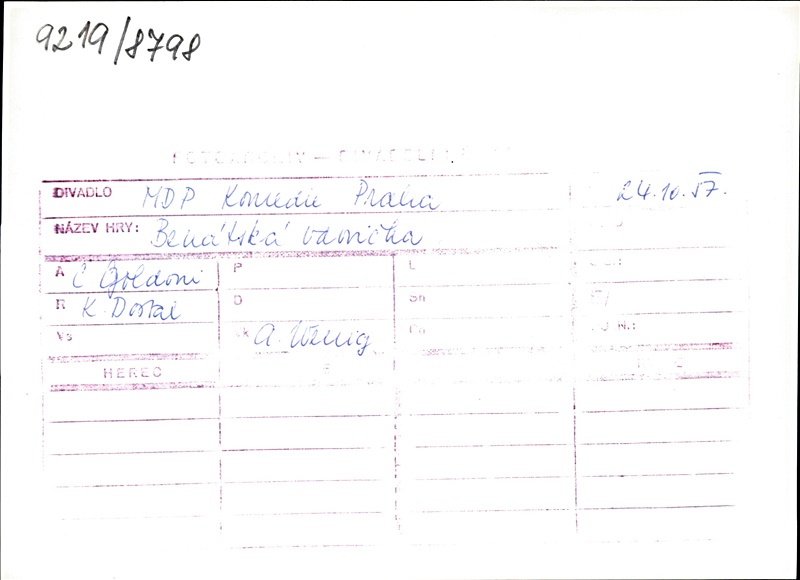 9219/8798
FOTOARCHIV — DIVADELNÍ
DIVADLO MDP Komedie Praha 24.10.57.
NÁZEV HRY: Benátská vdovička
A C Goldoni P L
R K. Dostal D Sn
Vs k A. Wenig
HEREC